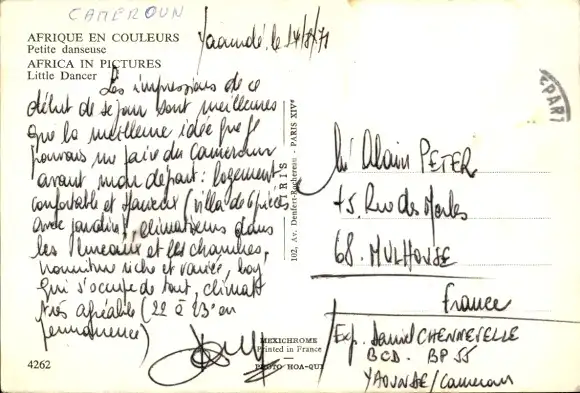 CAMEROUN
AFRIQUE EN COULEURS
Petite danseuse
AFRICA IN PICTURES
Little Dancer
Yaoundé, le 14/8/71
Les impressions de ce
début de séjour sont meilleures
que la meilleure idée que je
pouvais me faire du Cameroun
avant mon départ : logement
confortable et spacieux (villa de 6 pièces
avec jardin), climatiseurs dans
les bureaux et les chambres,
nourriture riche et variée, boy
qui s'occupe de tout, climat
très agréable (22 à 23° en
permanence)
4262
IRIS
102, Av. Denfert-Rochereau - PARIS XIVe
MEXICHROME
Printed in France
PHOTO HOA-QUI
PARI
Alain PETER
15, Rue des
68. MULHOUSE
France
Exp. Daniel CHENNEVELLE
BCD. BP 55
YAOUNDE/Cameroun